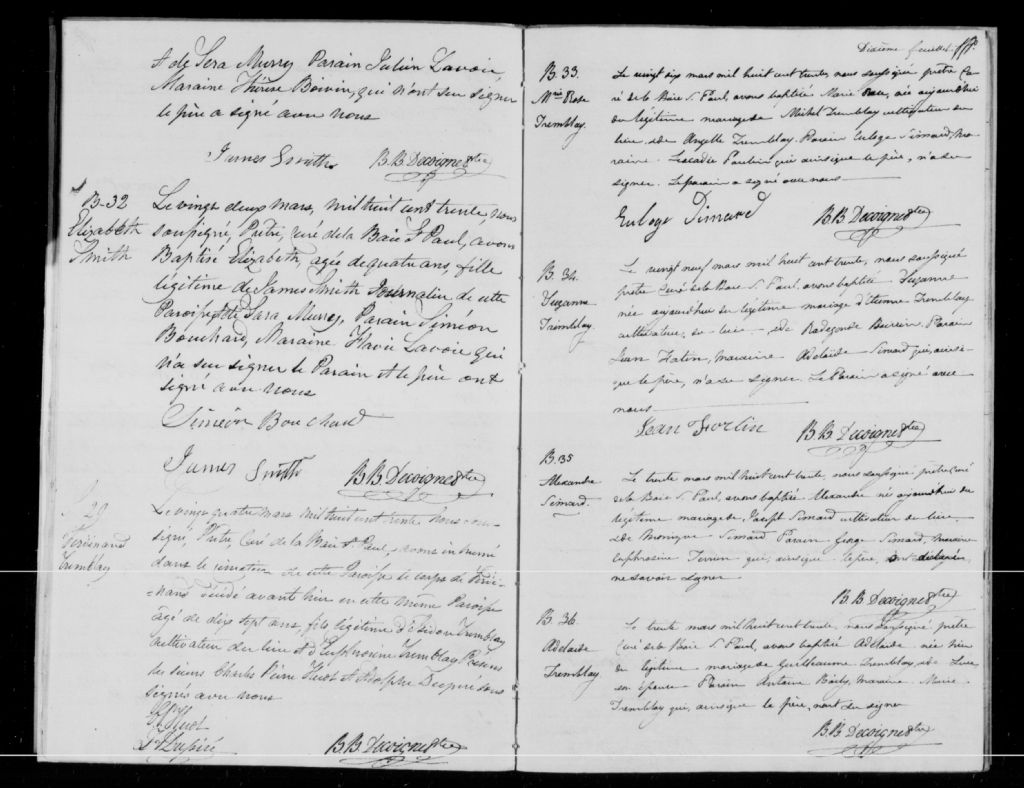 & de Sera Murrey Parain Julien Lavoie,
Maraine Thérèse Boivin, qui n'ont su signer
le père a signé avec nous
James Smith B B Decoigne Ptre
B-32
Elizabeth
Smith
Le vingt deux mars, mil huit cent trente, nous
soussigné, Prètre, Curé de la Baie St Paul, avons
Baptisé Elizabeth, agée de quatre ans, fille
légitime de James Smith Journalier de cette
Paroisse & de Sara Murrey, Parain Siméon
Bouchard, Maraine Flavie Lavoie qui
n'a su signer le Parain & le père ont
signé avec nous
Siméon Bouchard
James Smith B B Decoigne Ptre
S 20
Ferdinand
Tremblay
Le vingt quatre mars mil huit cent trente nous sou-
signé, Prètre, Curé de la Baie St Paul, avons inhumé
dans le cimetière de cette Paroisse le corps de Ferdi-
nand décédé avant hier en cette même Paroisse
agé de dix sept ans, fils légitime d' Tremblay
cultivateur du lieu & d'Euphrosine Tremblay Présens
les sieurs Charles Pierre Huot & Adolphe Dupéré sous
signés avec nous
Huot
Dupéré B B Decoigne Ptre
Dixième feuillet
B. 33.
Mrie Rose
Tremblay.
Le vingt six mars mil huit cent trente, nous soussigné prètre Cu-
ré de la Baie S. Paul, avons baptisée Marie Rose, née aujourd'hui
du légitime mariage de Michel Tremblay cultivateur du
lieu, et de Angelle Tremblay. Parain Euloge Simard, Ma-
raine Leocadie qui ainsique le père, n'a su
signer. Le parain a signé avec nous
Euloge Simard B B Decoigne Ptre
B. 34.
Suzanne
Tremblay.
Le vingt neuf mars mil huit cent trente, nous soussigné
prètre Curé de la Baie S. Paul, avons baptisée Suzanne
née aujourd'hui du légitime mariage d'Etienne Tremblay
cultivateur, du lieu et de Radegonde Parain
Jean maraine Adelaïde Simard qui, ainsi-
que le père, n'a su signer. Le Parain a signé avec
nous
Jean Fortin B B Decoigne Ptre
B. 35
Alexandre
Simard.
Le trente mars mil huit cent trente, nous soussigné prètre Curé
de la Baie S. Paul, avons baptisé Alexandre né aujourd'hui du
légitime mariage de Simard cultivateur du lieu,
et de Monique Simard Parain George Simard, maraine
Euphrosine qui, ainsique le père, ont déclaré
ne savoir signer
B. B. Decoigne Ptre
B. 36.
Adelaide
Tremblay.
Le trente mars mil huit cent trente, nous soussigné prètre
Curé de la Baie S. Paul, avons baptisé Adelaïde née hier
du légitime mariage de Guilleaume Tremblay, et de Luce
son épouse Parain Antoine Maraine Marie
Tremblay qui, ainsique le père, n'ont su signer
B. B. Decoigne Ptre